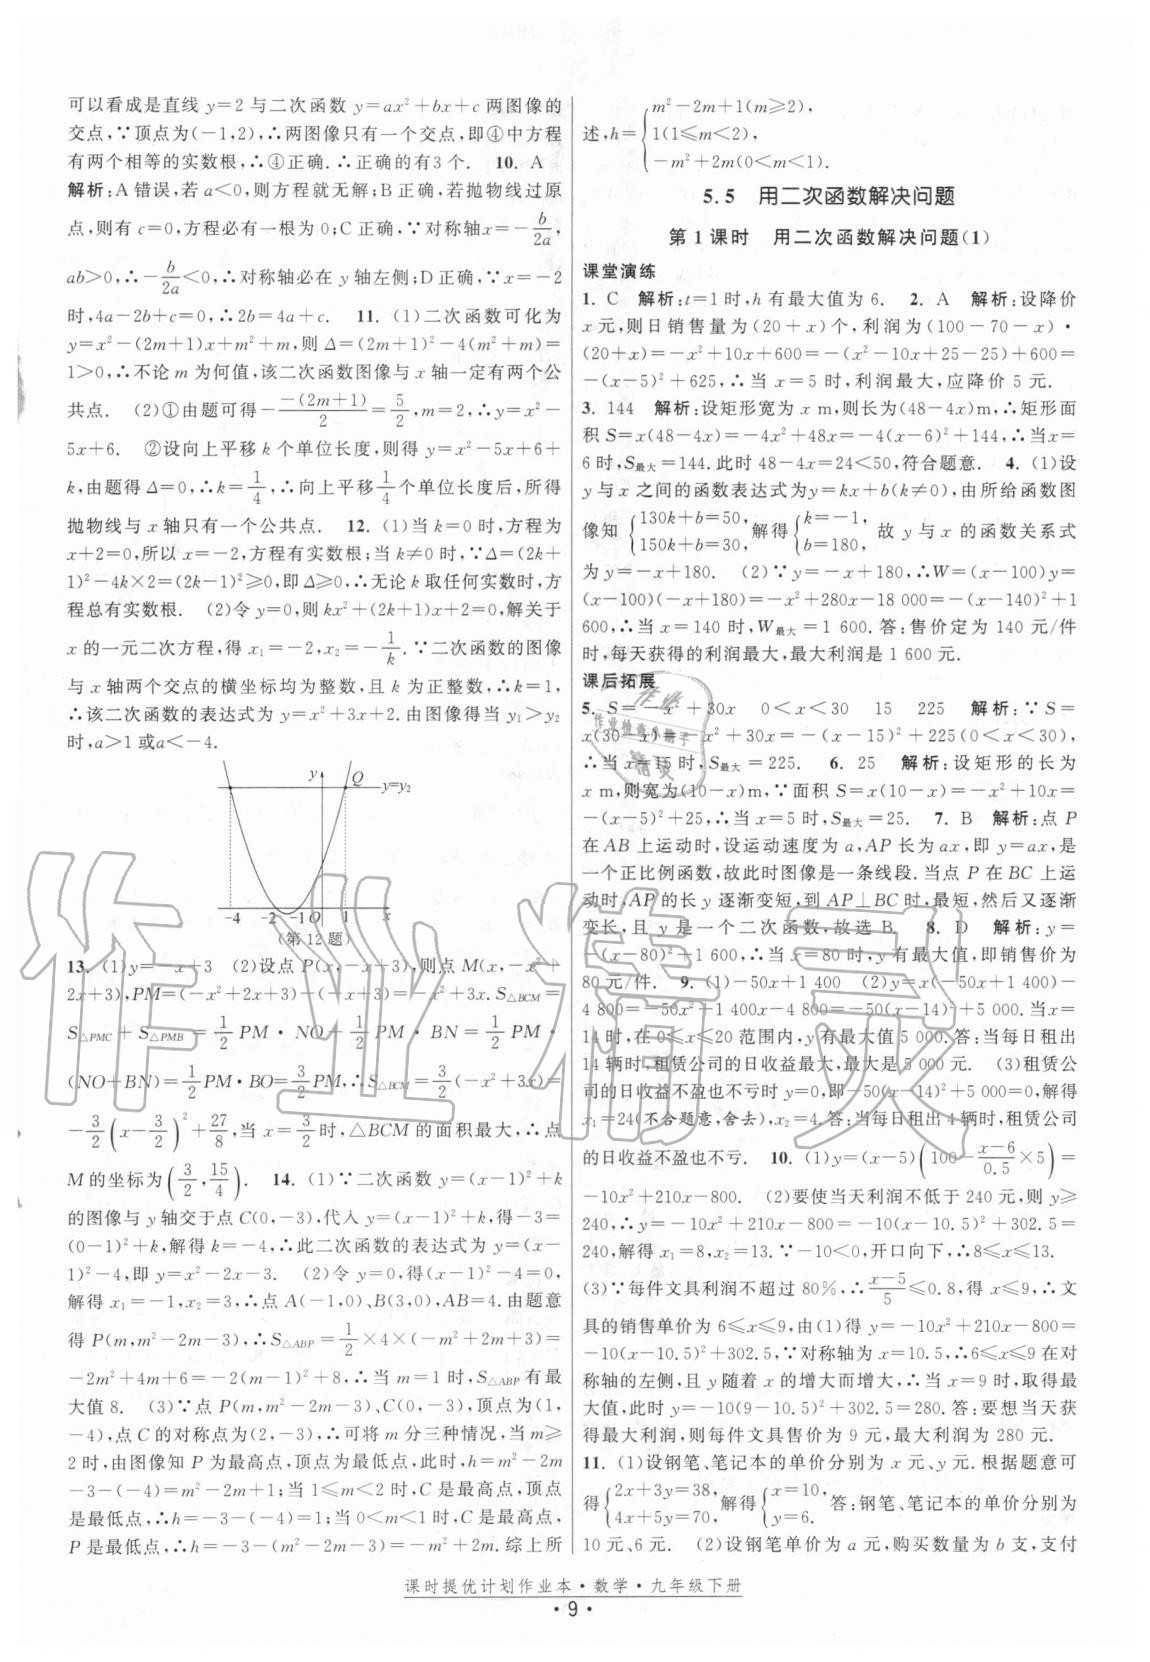 可以看成是直线 y=2 与二次函数 y=ax²+bx+c 两图像的
交点,∵顶点为(-1,2),∴两图像只有一个交点,即④中方程
有两个相等的实数根,∴④正确.∴正确的有3个. 10. A
解析:A 错误,若 a<0,则方程就无解;B 正确,若抛物线过原
点,则有 c=0,方程必有一根为 0;C 正确,∵对称轴x=-b/2a,
ab>0,∴-b/2a<0,∴对称轴必在 y 轴左侧;D 正确,∵x=-2
时,4a-2b+c=0,∴2b=4a+c. 11. (1)二次函数可化为
y=x²-(2m+1)x+m²+m,则Δ=(2m+1)²-4(m²+m)=
1>0,∴不论 m 为何值,该二次函数图像与 x 轴一定有两个公
共点. (2)①由题可得-(-(2m+1))/2=5/2,m=2,∴y=x²-
5x+6. ②设向上平移 k 个单位长度,则得 y=x²-5x+6+
k,由题得Δ=0,∴k=1/4,∴向上平移1/4个单位长度后,所得
抛物线与 x 轴只有一个公共点. 12. (1)当 k=0 时,方程为
x+2=0,所以 x=-2,方程有实数根;当 k≠0 时,∵Δ=(2k+
1)²-4k×2=(2k-1)²≥0,即Δ≥0,∴无论 k 取任何实数时,方
程总有实数根. (2)令 y=0,则 kx²+(2k+1)x+2=0,解关于
x 的一元二次方程,得 x₁=-2,x₂=-1/k.∵二次函数的图像
与 x 轴两个交点的横坐标均为整数,且 k 为正整数,∴k=1,
∴该二次函数的表达式为 y=x²+3x+2.由图像得当 y₁>y₂
时,a>1 或a<-4.
y Q y=y₂
-4 -2 -1 O 1 x
(第12题)
13. (1)y=-x+3 (2)设点 P(x,-x+3),则点 M(x,-x²+
2x+3),PM=(-x²+2x+3)-(-x+3)=-x²+3x.S△BCM=
S△PMC+S△PMB=1/2PM·NO+1/2PM·BN=1/2PM·
(NO+BN)=1/2PM·BO=3/2PM,∴S△BCM=3/2(-x²+3x)=
-3/2(x-3/2)²+27/8,当 x=3/2时,△BCM 的面积最大,∴点
M 的坐标为(3/2,15/4). 14. (1)∵二次函数 y=(x-1)²+k
的图像与 y 轴交于点 C(0,-3),代入 y=(x-1)²+k,得-3=
(0-1)²+k,解得 k=-4,∴此二次函数的表达式为 y=(x-
1)²-4,即 y=x²-2x-3. (2)令 y=0,得(x-1)²-4=0,
解得 x₁=-1,x₂=3,∴点 A(-1,0)、B(3,0),AB=4.由题意
得 P(m,m²-2m-3),∴S△ABP=1/2×4×(-m²+2m+3)=
-2m²+4m+6=-2(m-1)²+8,∴当 m=1 时,S△ABP有最
大值 8. (3)∵点 P(m,m²-2m-3)、C(0,-3),顶点为(1,
-4),点 C 的对称点为(2,-3),∴可将 m 分三种情况,当 m≥
2 时,由图像知 P 为最高点,顶点为最低点,此时,h=m²-2m
-3-(-4)=m²-2m+1;当 1≤m<2 时,C 是最高点,顶点
是最低点,∴h=-3-(-4)=1;当 0<m<1 时,C 是最高点,
P 是最低点,∴h=-3-(m²-2m-3)=-m²+2m.综上所
述,h={m²-2m+1(m≥2),
1(1≤m<2),
-m²+2m(0<m<1).
5.5 用二次函数解决问题
第 1 课时 用二次函数解决问题(1)
课堂演练
1. C 解析:t=1 时,h 有最大值为 6. 2. A 解析:设降价
x 元,则日销售量为(20+x)个,利润为(100-70-x)·
(20+x)=-x²+10x+600=-(x²-10x+25-25)+600=
-(x-5)²+625,∴当 x=5 时,利润最大,应降价 5 元.
3. 144 解析:设矩形宽为 x m,则长为(48-4x)m,∴矩形面
积 S=x(48-4x)=-4x²+48x=-4(x-6)²+144,∴当x=
6 时,S最大=144.此时 48-4x=24<50,符合题意. 4. (1)设
y 与 x 之间的函数表达式为y=kx+b(k≠0),由所给函数图
像知 {130k+b=50, 150k+b=30, 解得 {k=-1, b=180, 故 y 与 x 的函数关系式
为 y=-x+180. (2)∵y=-x+180,∴W=(x-100)y=
(x-100)(-x+180)=-x²+280x-18 000=-(x-140)²+1
600,∴当 x=140 时,W最大=1 600.答:售价定为 140 元/件
时,每天获得的利润最大,最大利润是 1 600 元.
课后拓展
5. S=-x²+30x 0<x<30 15 225 解析:∵S=
x(30-x)=-x²+30x=-(x-15)²+225(0<x<30),
∴当 x=15 时,S最大=225. 6. 25 解析:设矩形的长为
x m,则宽为(10-x)m,∵面积 S=x(10-x)=-x²+10x=
-(x-5)²+25,∴当 x=5 时,S最大=25. 7. B 解析:点 P
在 AB 上运动时,设运动速度为 a,AP 长为 ax,即 y=ax,是
一个正比例函数,故此时图像是一条线段.当点 P 在 BC 上运
动时,AP 的长 y 逐渐变短,到 AP⊥BC 时,最短,然后又逐渐
变长,且 y 是一个二次函数,故选 B. 8. D 解析:y=
-(x-80)²+1 600,∴当 x=80 时,y 有最大值,即销售单价为
80 元/件. 9. (1)-50x+1 400 (2)y=x(-50x+1 400)-
4 800=-50x²+1 400x-4 800=-50(x-14)²+5 000.当x=
14 时,在 0≤x≤20 范围内,y 有最大值 5 000.答:当每日租出
14 辆时,租赁公司的日收益最大,最大是 5 000 元. (3)租赁公
司的日收益不盈也不亏时 y=0,即-50(x-14)²+5 000=0,解得
x₁=24(不合题意,舍去),x₂=4.答:当每日租出 4 辆时,租赁公司
的日收益不盈也不亏. 10. (1)y=(x-5)(100-(x-6)/0.5×5)=
-10x²+210x-800. (2)要使当天利润不低于 240 元,则 y≥
240,∴y=-10x²+210x-800=-10(x-10.5)²+302.5=
240,解得 x₁=8,x₂=13.∵-10<0,开口向下,∴8≤x≤13.
(3)∵每件文具利润不超过 80%,∴(x-5)/5≤0.8,得 x≤9,∴文
具的销售单价为 6≤x≤9,由(1)得 y=-10x²+210x-800=
-10(x-10.5)²+302.5,∵对称轴为 x=10.5,∴6≤x≤9 在对
称轴的左侧,且 y随着 x 的增大而增大,∴当 x=9 时,取得最
大值,此时 y=-10(9-10.5)²+302.5=280.答:要想当天获
得最大利润,则每件文具售价为 9 元,最大利润为 280 元.
11. (1)设钢笔、笔记本的单价分别为 x 元、y 元.根据题意可
得{2x+3y=38, 4x+5y=70, 解得{x=10, y=6. 答:钢笔、笔记本的单价分别为
10 元、6 元. (2)设钢笔单价为 a 元,购买数量为 b 支,支付
作业
作业检查小帮手
精灵
作业精灵
课时提优计划作业本·数学·九年级下册
·9·